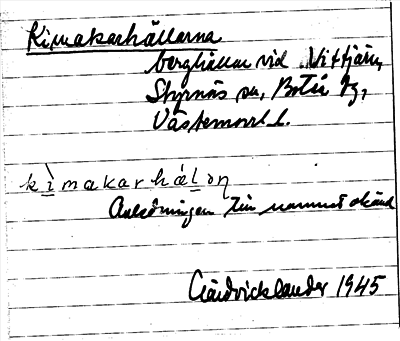 Kimakarhällarna
berghällar vid Vittjärn,
Styrnäs sn, Boteå tg,
Västernorrl. l.
kìmakarhæḷəṇ
Anledningen till namnet okänd
Gärdvicklander 1945